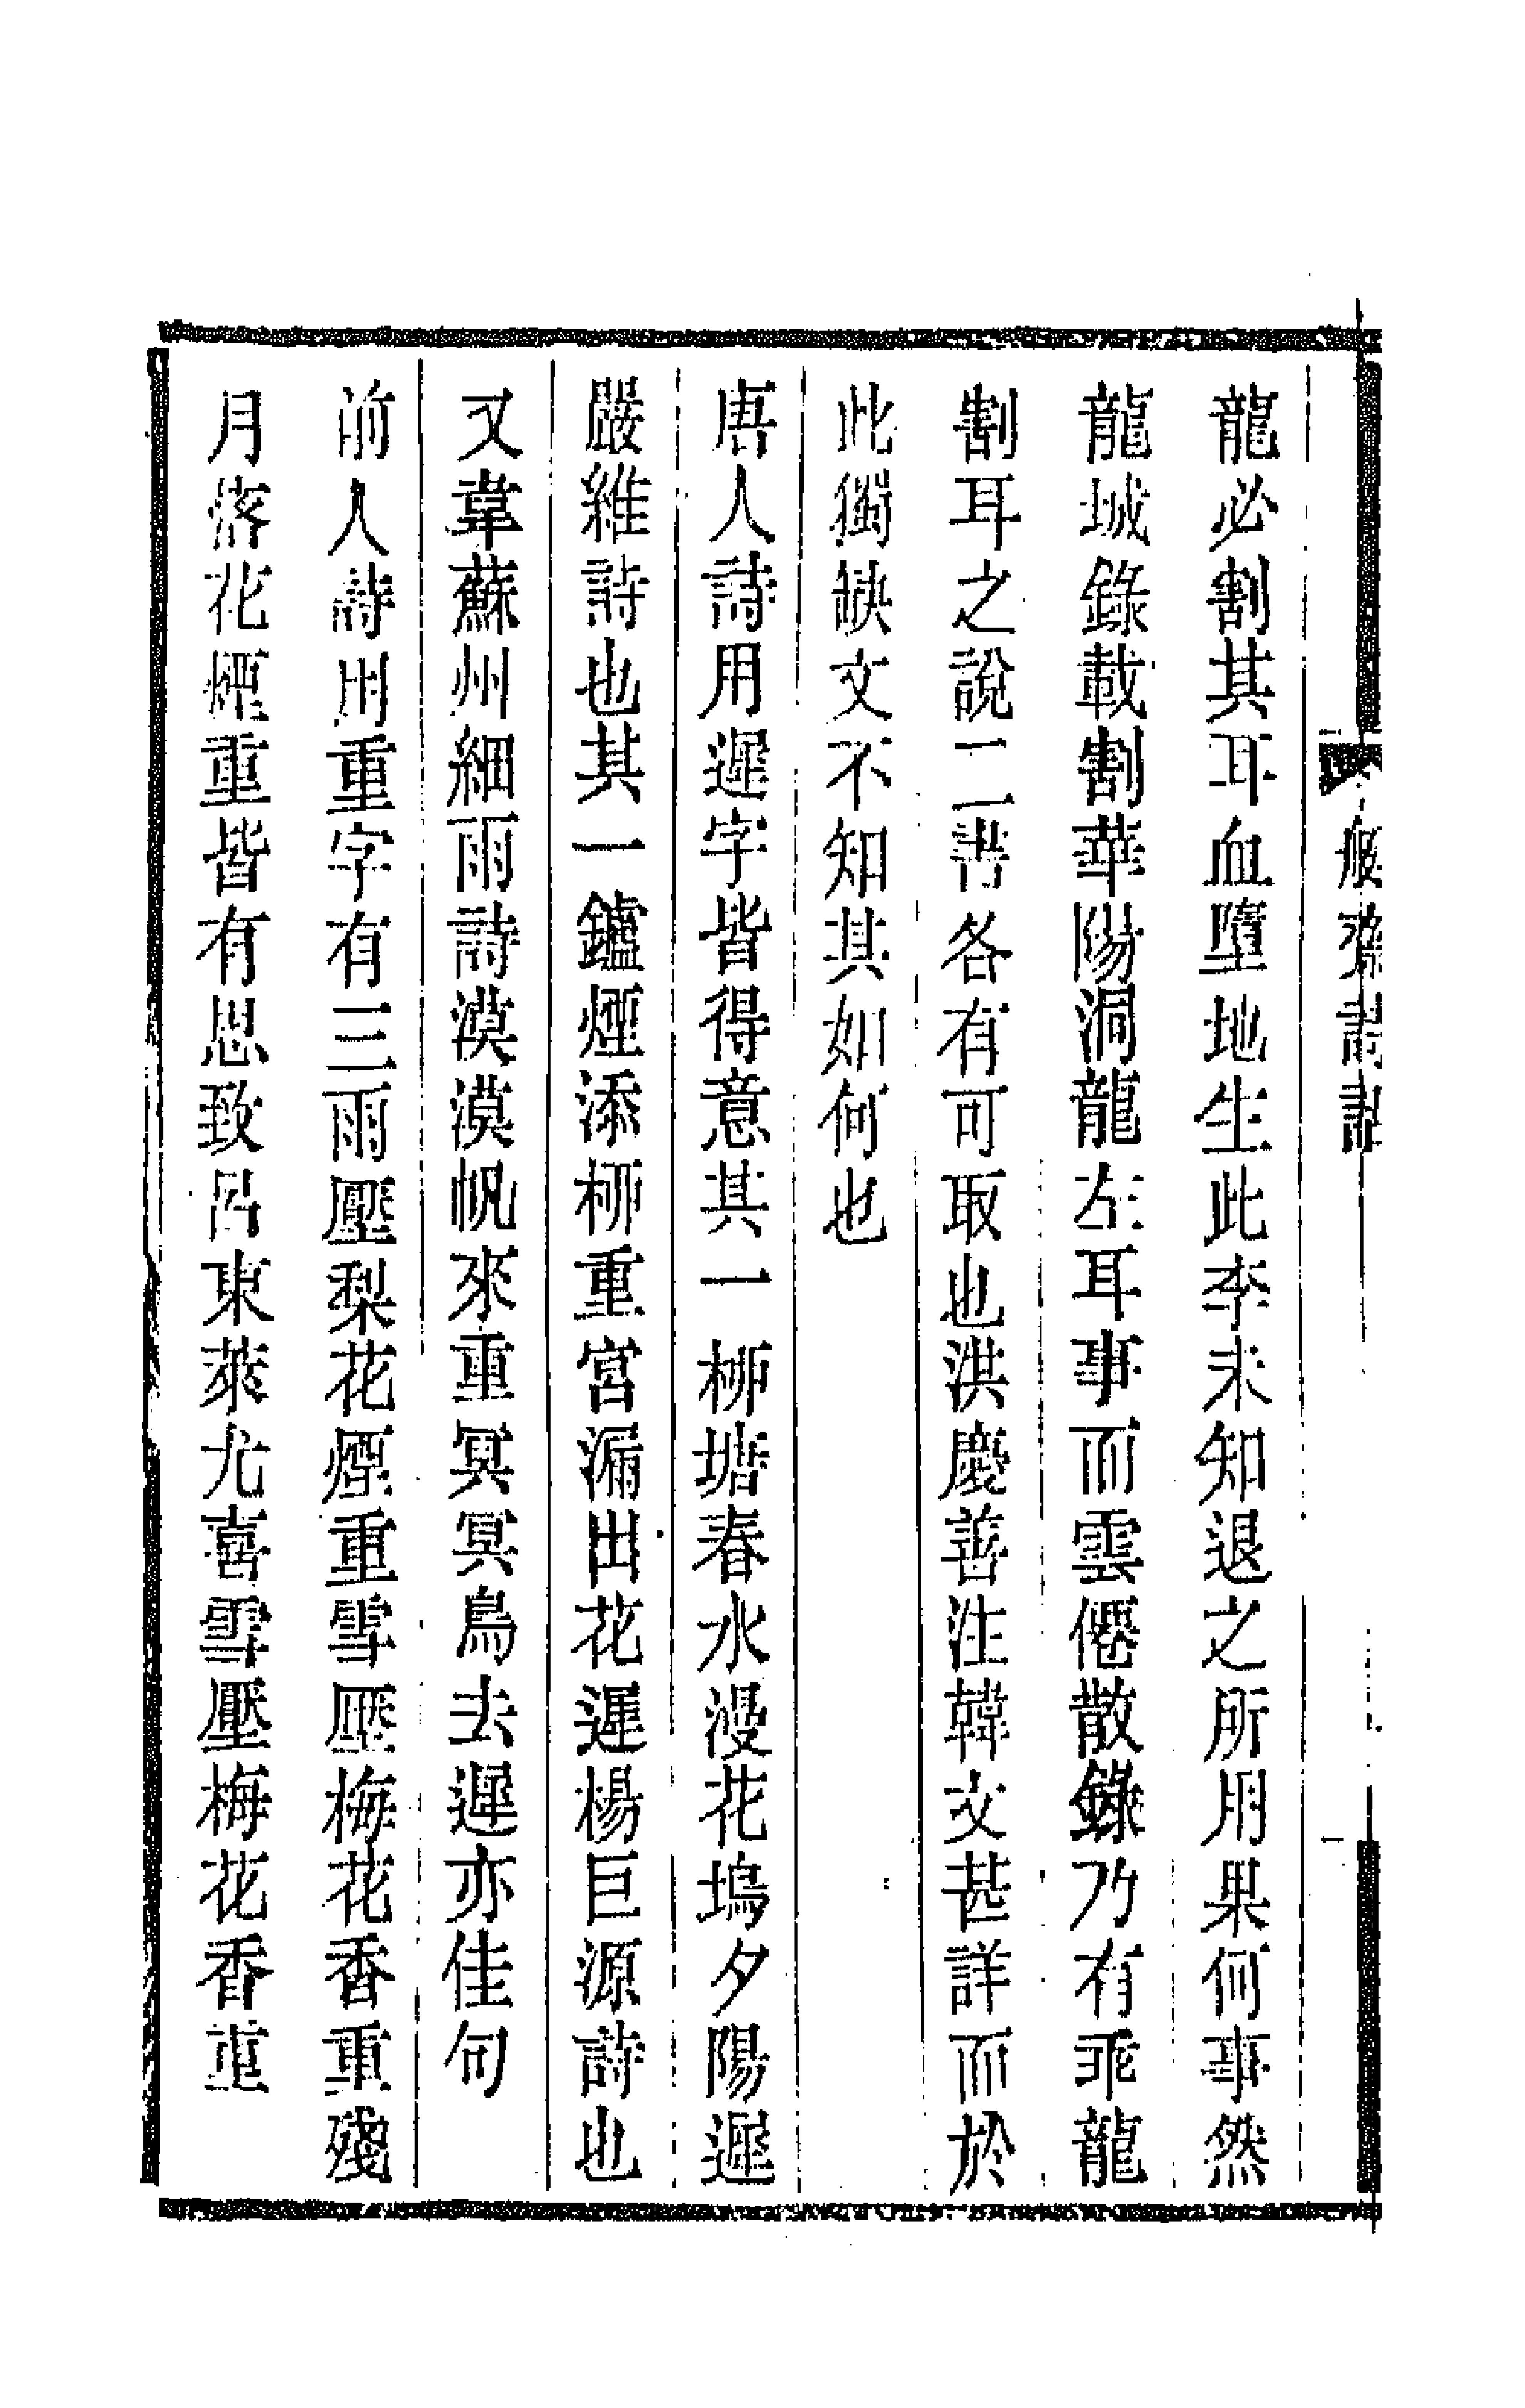 艇齋詩話
龍必割其耳血墮地生此李未知退之所用果何事然
龍城錄載割華陽洞龍左耳事而雲僊散錄乃有乖龍
割耳之說二書各有可取也洪慶善注韓文甚詳而於
此獨缺文不知其如何也
唐人詩用遲字皆得意其一柳塘春水漫花塢夕陽遲
嚴維詩也其一鑪煙添柳重宮漏出花遲楊巨源詩也
又韋蘇州細雨詩漠漠帆來重冥冥鳥去遲亦佳句
前人詩用重字有三雨壓梨花煙重雪壓梅花香重殘
月落花煙重皆有思致呂東萊尤喜雪壓梅花香重